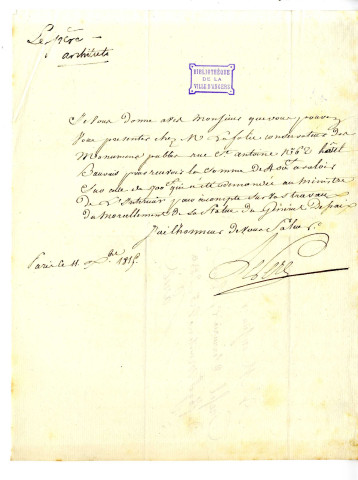 Le Père
architecte
BIBLIOTHÈQUE
DE LA
VILLE D'ANGERS
Je vous donne avis Monsieur que vous pouvez
vous presenter chez Mr conservateur des
Monumens publics rue St antoine No 62 hôtel
Beauvais pour recevoir la somme de a valoir
Sur celle de qui a été demandée au ministre
de L'interieur pour acompte Sur les travaux
du morcellement de la Statue du Général Desaix
J'ai l'honneur de vous Saluer
Le Père
Paris le 11 Xbre 1815